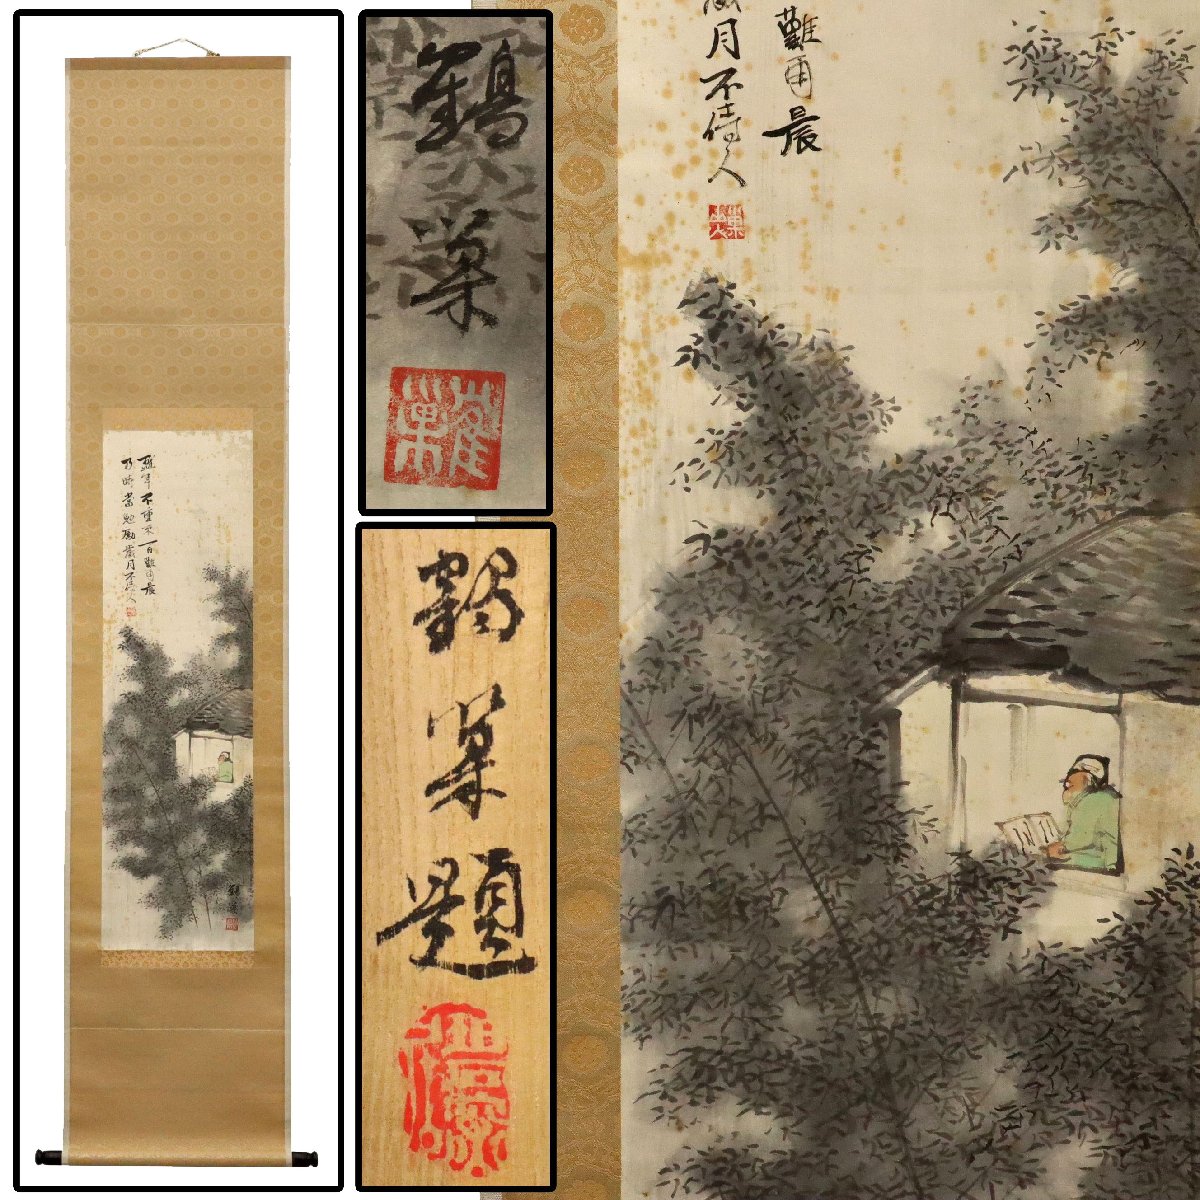 盛年不重来一日難再晨
及時當勉励歳月不待人
鶴巣
鶴巣
鶴巣題
難再晨
月不待人